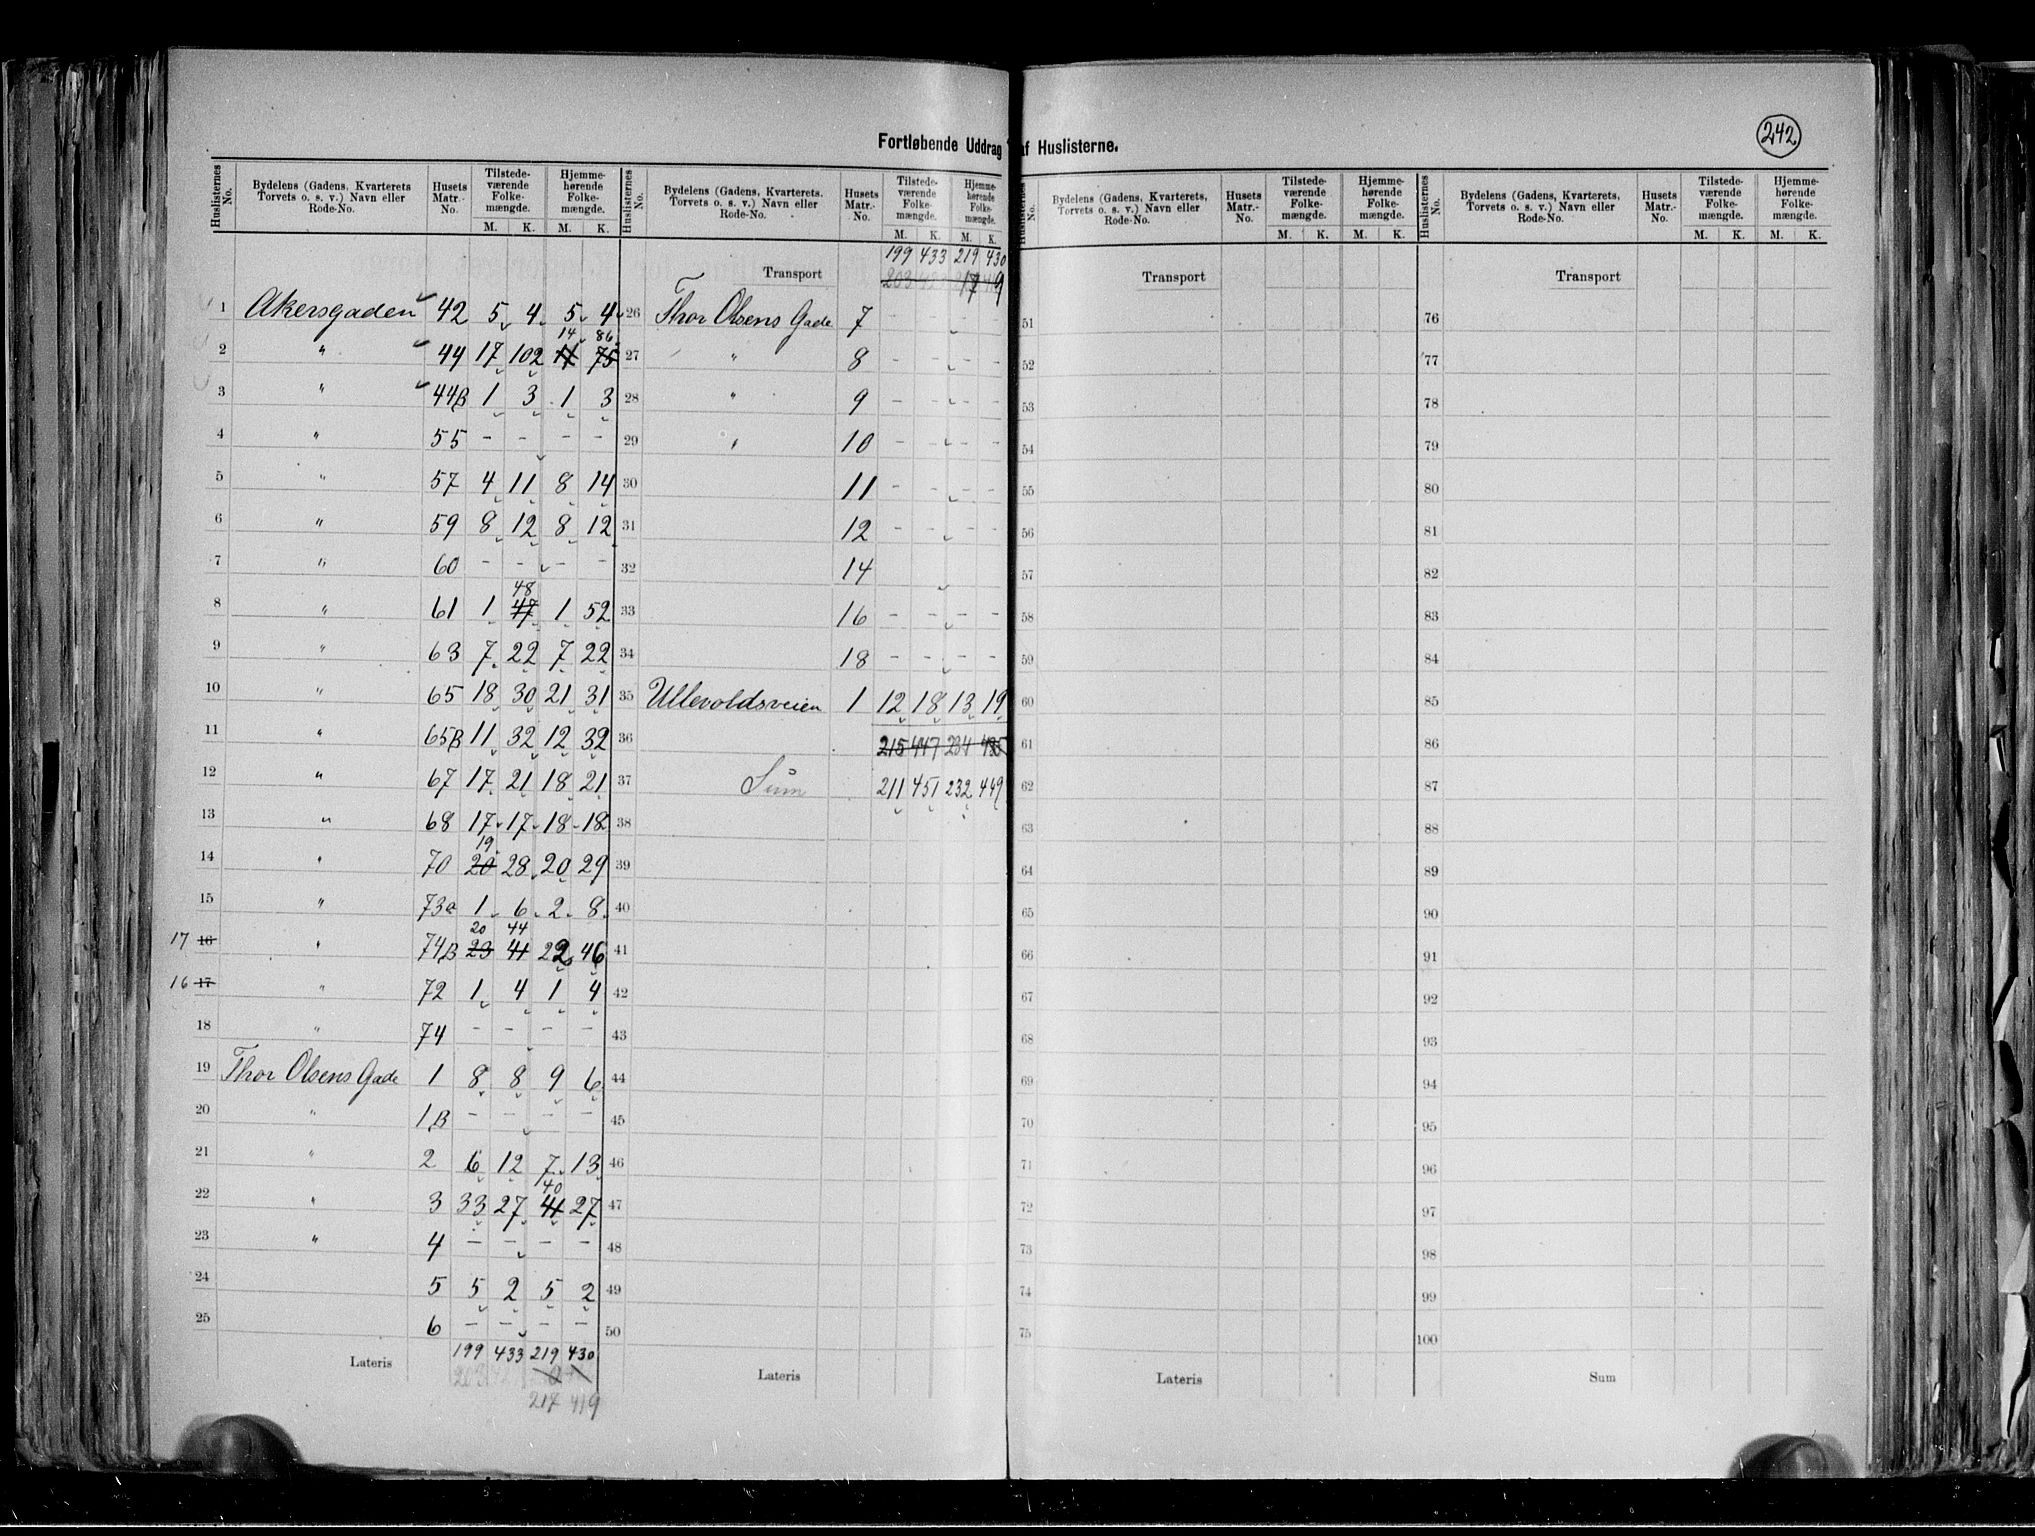 242
Fortløbende Uddrag af Huslisterne.
Huslisternes No. Bydelens (Gadens, Kvarterets Torvets o. s. v.) Navn eller Rode-No. Husets Matr.-No. Tilstedeværende Folkemængde. M. K. Hjemmehørende Folkemængde. M. K.
1 Akersgaden 42 5 4 5 4
14 86
2 " 44 17 102 11 75
3 " 44B 1 3 1 3
4 " 55 - - - -
5 " 57 4 11 8 14
6 " 59 8 12 8 12
7 " 60 - - - -
48
8 " 61 1 47 1 52
9 " 63 7 22 7 22
10 " 65 18 30 21 31
11 " 65B 11 32 12 32
12 " 67 17 21 18 21
13 " 68 17 17 18 18
19
14 " 70 20 28 20 29
15 " 73a 1 6 2 8
20 44
17 16 " 74B 23 41 22 46
16 17 " 72 1 4 1 4
18 " 74 - - - -
19 Thor Olsens Gade 1 8 8 9 6
20 " 1B - - - -
21 " 2 6 12 7 13
40
22 " 3 33 27 41 27
23 " 4 - - - -
24 5 5 2 5 2
25 6 - - - -
Lateris 199 433 219 430
203
217 419
Huslisternes No. Bydelens (Gadens, Kvarterets. Torvets o. s. v.) Navn eller Rode-No. Husets Matr.-No. Tilstedeværende Folkemængde. M. K. Hjemmehørende Folkemængde. M. K.
199 433 219 430
Transport 203
26 Thor Olsens Gade 7 - - - -
27 " 8 - - - -
28 " 9 - - - -
29 " 10 - - - -
30 11 - - - -
31 12 - - - -
32 14
33 16 - - - -
34 18 - - - -
35 Ullevoldsveien 1 12 18 13 19
36 215 447 234
37 Sum 211 451 232 449
38
39
40
41
42
43
44
45
46
47
48
49
50
Lateris
Huslisternes No. Bydelens (Gadens, Kvarterets, Torvets o. s. v.) Navn eller Rode-No. Husets Matr.-No. Tilstedeværende Folkemængde. M. K. Hjemmehørende Folkemængde. M. K.
Transport
51
52
53
54
55
56
57
58
59
60
61
62
63
64
65
66
67
68
69
70
71
72
73
74
75
Lateris
Huslisternes No. Bydelens (Gadens, Kvarterets, Torvets o. s. v.) Navn eller Rode-No. Husets Matr.-No. Tilstedeværende Folkemængde. M. K. Hjemmehørende Folkemængde. M. K.
Transport
76
77
78
79
80
81
82
83
84
85
86
87
88
89
90
91
92
93
94
95
96
97
98
99
100
Sum